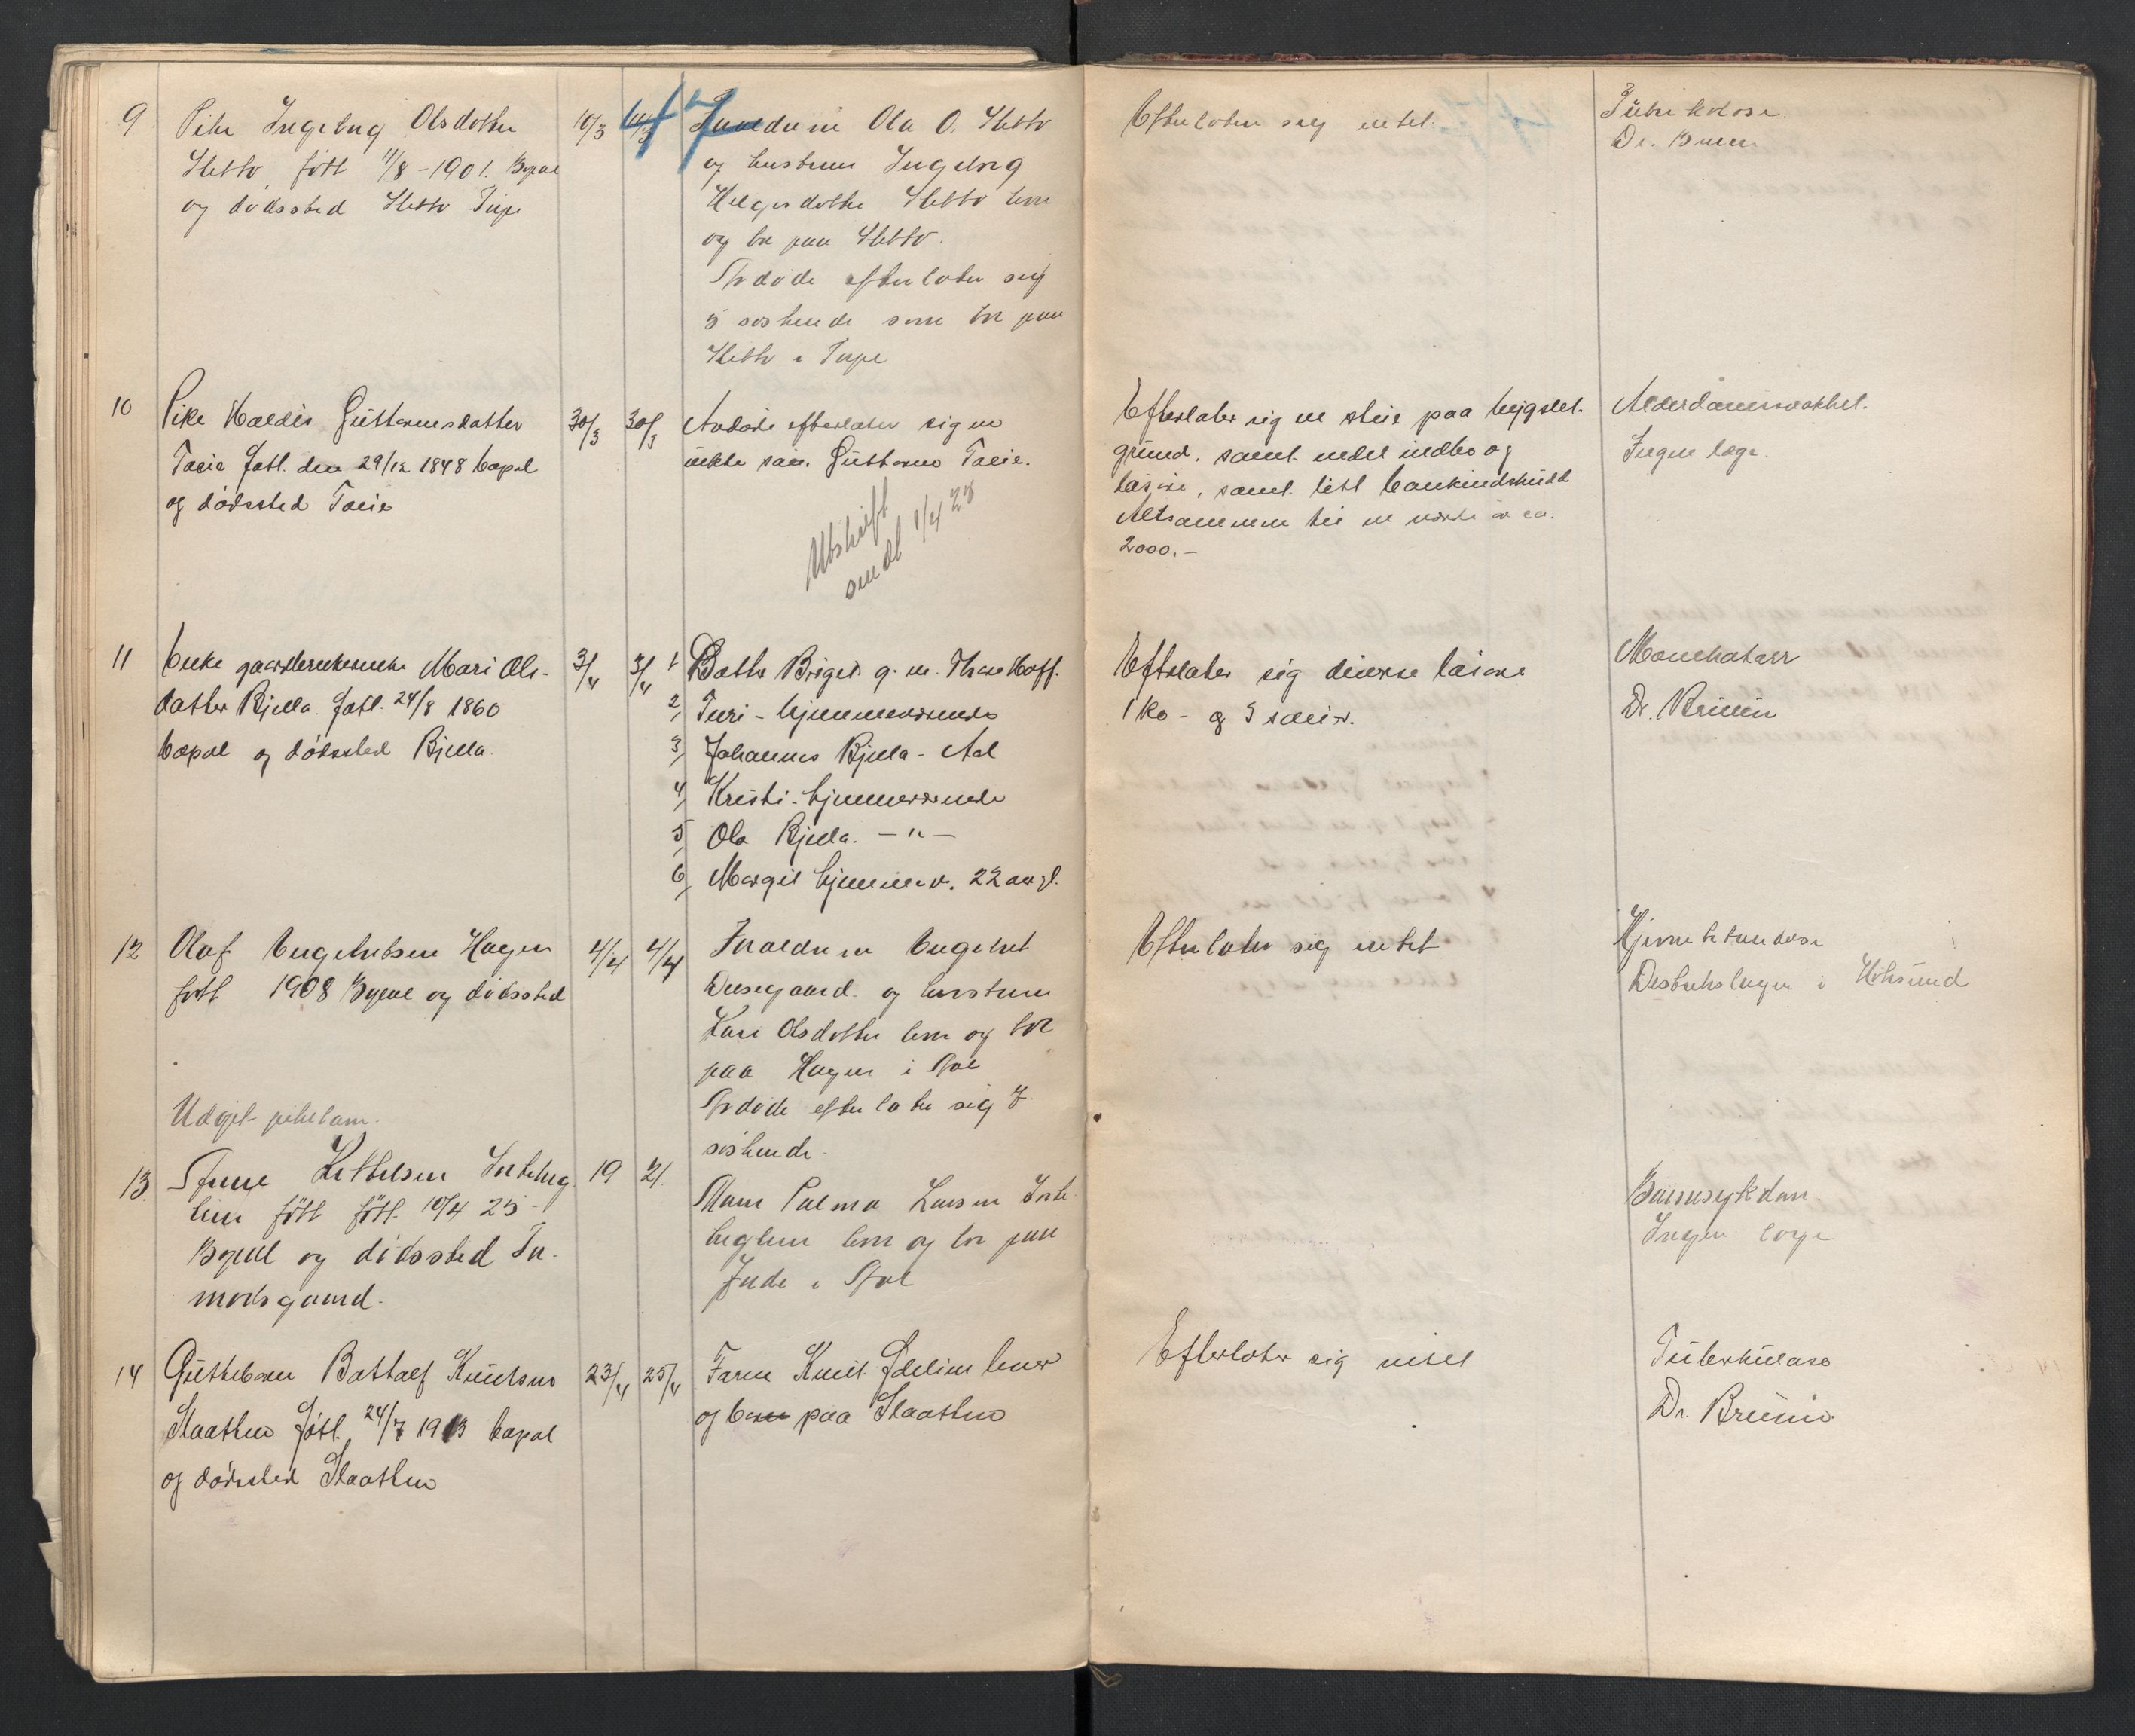 9 Pike Ingeborg Olsdotter
Sletto født 11/8 - 1901. Bopæl
og dødssted Sletto Torpe
10/3
Foreldrene Ola O. Sletto
og hustru Ingeborg
Helgesdotter Sletto lever
og bor paa Sletto.
Avdøde efterlater sig
5 søskende som bor paa
Sletto i Torpe
Efterlater sig intet.
Tuberkulose
Dr. Bruun
10 Pike Haldis Guttormsdatter
født den 29/12 1848 bopæl
og dødssted
30/3 30/3
Avdøde efterlater sig en
uekte søn. Guttorm
Utskrift
sendt 1/4 23
Efterlater sig en stue paa bygslet
grund, samt endel indbo og
løsøre, samt litt bankindskudd
Altsammen til en værdi av ca.
2000.-
Alderdomssvakhet.
Ingen læge.
11 Enke gaardbrukerenke Mari Ols-
datter Bjella født 24/8 1860
bopæl og dødssted Bjella.
3/4 3/4
1 Datter Birgit g. m. Hoff.
2, Turi - hjemmeværende
3, Johannes Bjella - Aal
4, Kristi - hjemmeværende
5, Ola Bjella. - " -
6, Margit hjemmev. 22 aar gl.
Efterlater sig diverse løsøre
1 ko - og 3 sauer.
Dr. Bruun
12 Olaf Engebretsen Hagen
født 1908 Bopæl og dødssted
4/4 4/4
Foreldrene Engebret
og hustru
Kari Olsdotter lever og bor
paa Hagen i Aal
Avdøde efterlater sig 7
søskende.
Efterlater sig intet
Hjernebetendelse
Distriktslægen i Hokksund
Udøpt pikebarn.
13. Kittelsen
født født 10/4 23
Bopæl og dødssted
19 21.
Mor Palma Larsen
lever og bor paa
i Aal
Barnesykdom.
Ingen læge
14 Guttebarn Botholf Knutsen
Slaatten født 24/7 1913 bopæl
og dødssted Slaatten
23/4 25/4
Faren Knut lever
og bor paa Slaatten
Efterlater sig intet
Tuberkulose
Dr. Bruun